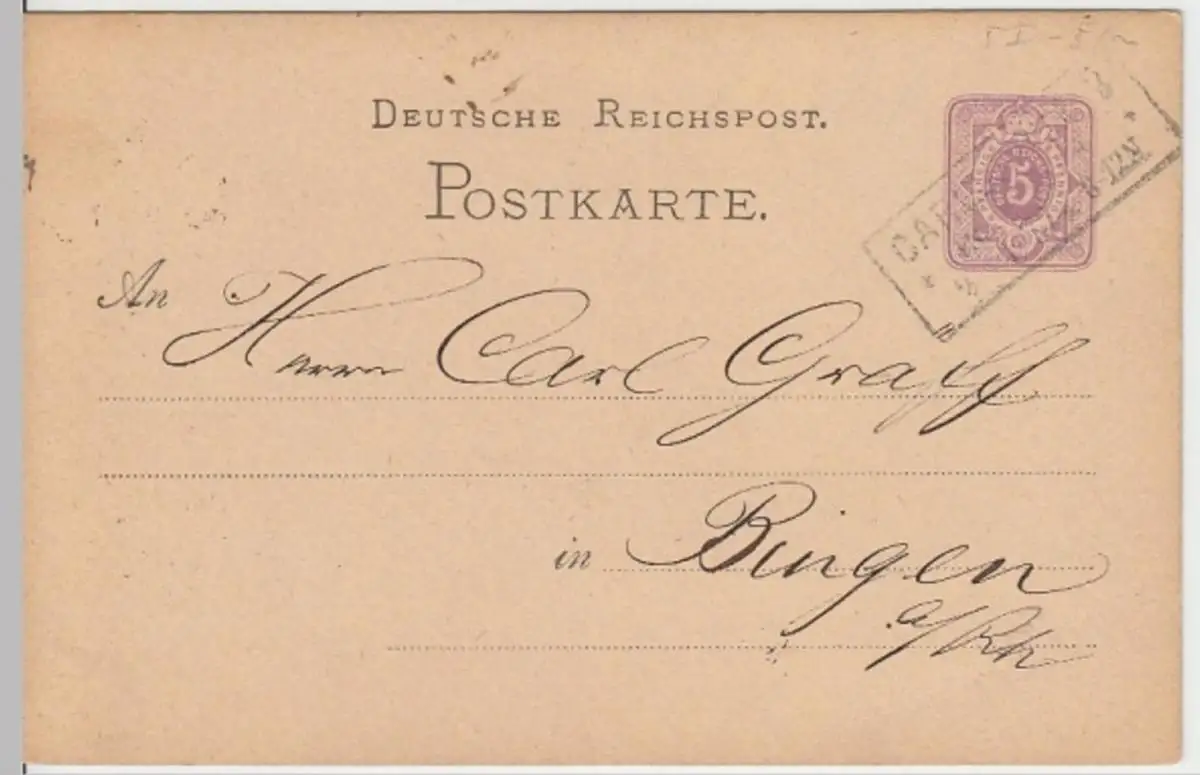 DEUTSCHE REICHSPOST.
POSTKARTE.
5
An Herrn Carl Graff
in Bingen
a/Rh